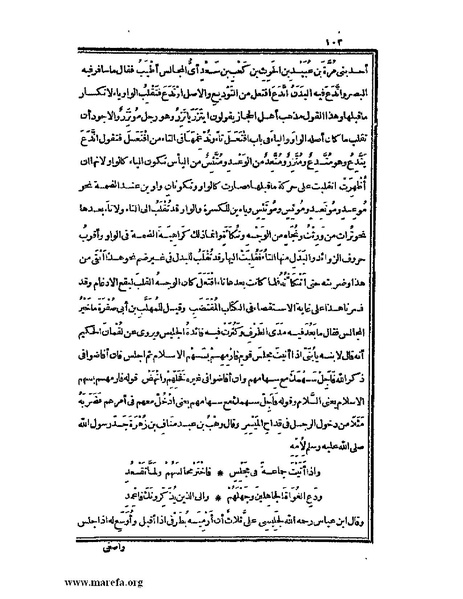 ١٠٣
أحد بنى مُرَّة بن عُبَيد بن الحرث بن كعب بن سعد أىُّ المجالس أطيب فقال ما سافر فيه
البصر واتَّدع فيه البدَن اتَّدع افتعل من التَّوديع والاصل اوتدع فتقلب الواو ياء لانكسار
ما قبلها وهذا القول مذهب أهل الحجاز يقولون ايتزر ياتزر وهو رجل موتزر والاجود أن
تقلب ما كان أصله الواو والياء فى باب افتعل تاء وتدغم فى التاء من افتعل فتقول اتَّدع
يتَّدع وهو متَّدع ومتَّزر ومتَّعد من الوَعد ومتَّئس من اليأس تكون الياء كالواو لانها ان
أُظهرت انقلبت على حركة ما قبلها فصارت كالواو وتكونان واوين عند الضمة نحو
موعد وموتعد وموتئس ويائين للكسرة والواو قد تُقلب الى التاء ولا تاء بعدها
نحو تُراث من ورثت وتُجاه من الوجه وتُكَأة وانما ذلك كراهية الضمة فى الواو وأقرب
حروف الزوائد والبدل منها التاء فقلبت اليها وقد تقلب للبدل فى غير ضم نحو هذا أتقى من
هذا وضربته حتى أتكأته فلما كانت بعدها تاء افتعل كان الوجه القلب ليقع الادغام وقد
فسرنا هذا على غاية الاستقصاء فى الكتاب المقتضب وقيل للمهلَّب بن أبى صُفرة ما خير
المجالس فقال ما بعد فيه مدى الطرف وكثرت فيه فائدة الجليس ويروى عن لقمان الحكيم
أنه قال لابنه يا بنىّ اذا أتيت مجلس قوم فارمهم بسهم الاسلام ثم اجلس فان أفاضوا فى
ذكر الله فأجِل سهمك مع سهامهم وان أفاضوا فى غيره فخلّهم وانهض قوله فارمهم بسهم
الاسلام يعنى السَّلام وقوله فأجل سهمك مع سهامهم يعنى ادخل معهم فى أمرهم فضربه
مثلا من دخول الرجل فى قداح الميسر وقال وهب بن عبد مناف بن زُهرة جد رسول الله
صلى الله عليه وسلم لأمه
واذا أتيت جماعة فى مجلس * فاختر مجالسهم ولما تقعد
ودع الغواة الجاهلين وجهلهم * والى الذين يذكرونك فاعمد
وقال ابن عباس رحمه الله لجليسى علىَّ ثلاث أن أرميه بطرفى اذا أقبل وأوسع له اذا جلس
وأصغى
www.marefa.org